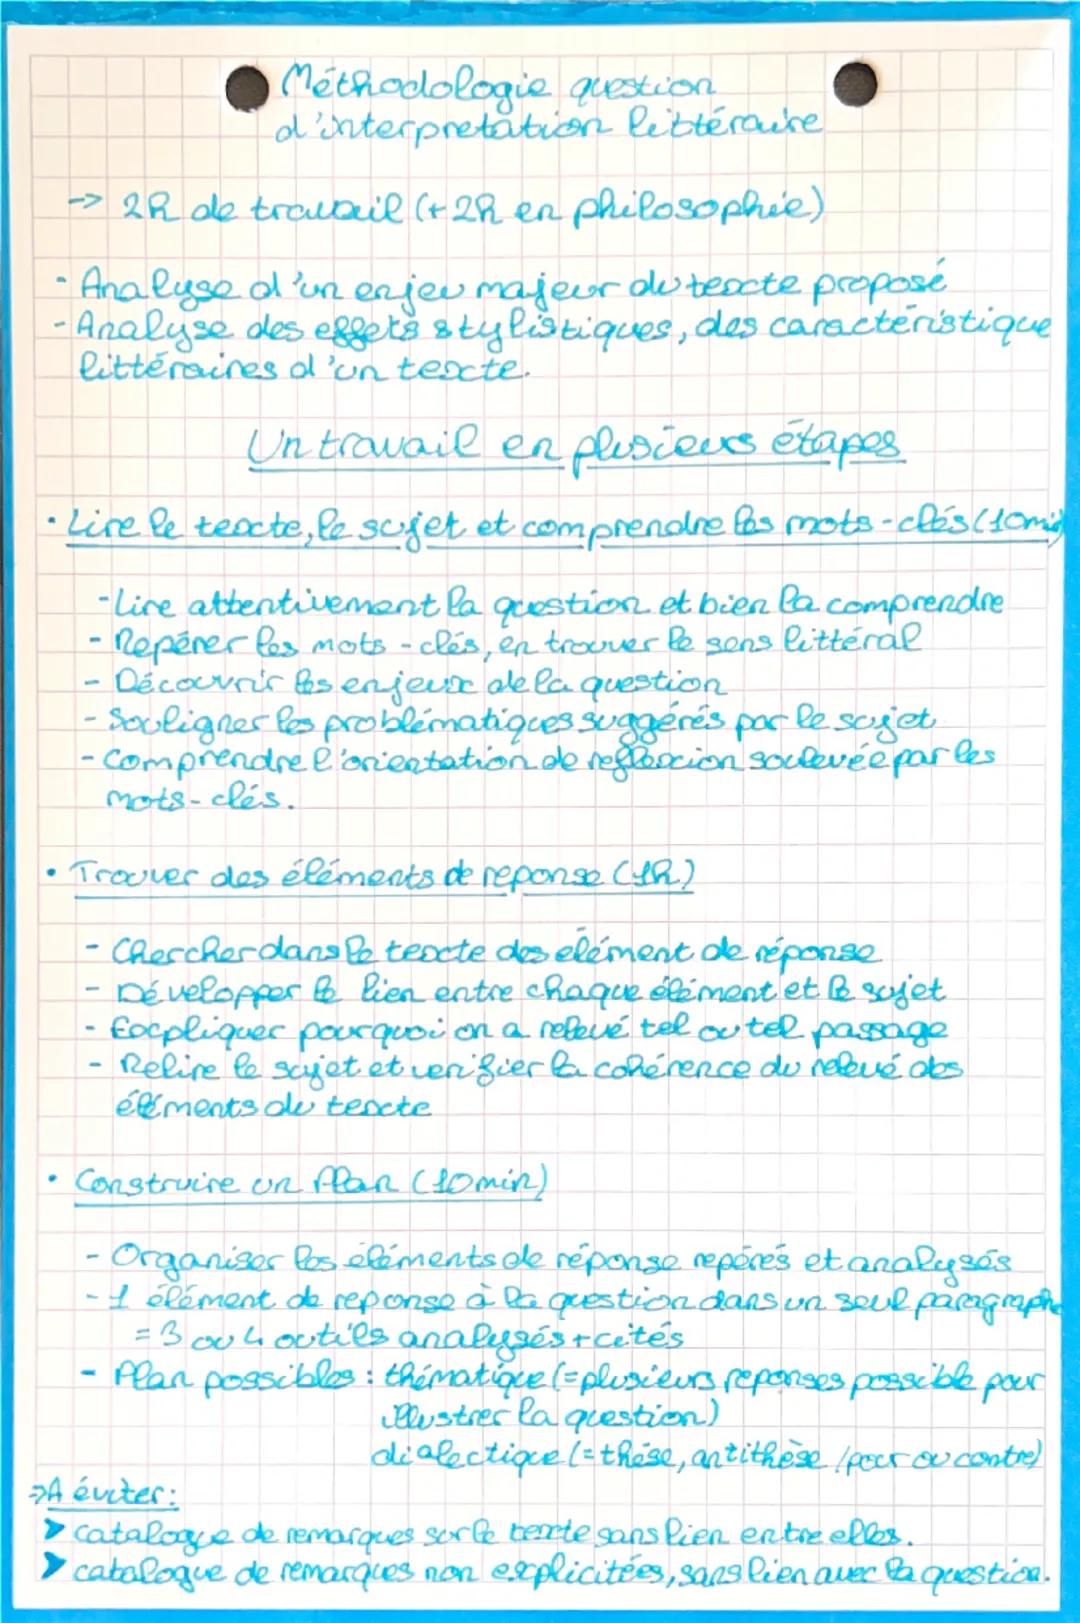 Méthodologie question
d'interpretation littéraire
-> 2h de travail (+2h en philosophie)
- Analyse d'un enjeu majeur du texte proposé
- Analyse des effets stylistiques, des caractéristique
littéraires d'un texte.
Un travail en plusieurs étapes
• Lire le texte, le sujet et comprendre les mots-clés (10min)
- Lire attentivement la question et bien la comprendre
- Repérer les mots-clés, en trouver le sens littéral
- Découvrir les enjeux de la question
- Souligner les problématiques suggérés par le sujet
- Comprendre l'orientation de reflexion soulevée par les
mots-clés.
• Trouver des éléments de reponse (1h)
- Chercher dans le texte des elément de réponse
- Développer le lien entre chaque élément et le sujet
- Expliquer pourquoi on a relevé tel ou tel passage
- Relire le sujet et verifier la cohérence du relevé des
éléments du texte
• Construire un Plan (10min)
- Organiser les éléments de réponse repérés et analysés
- 1 élément de reponse à la question dans un seul paragraphe
= 3 ou 4 outils analysés + cités
- Plan possibles : thématique (= plusieurs reponses possible pour
illustrer la question)
dialectique (= thèse, antithèse / pour ou contre)
=> A éviter :
➤ catalogue de remarques sur le texte sans lien entre elles.
➤ catalogue de remarques non explicitées, sans lien avec la question.